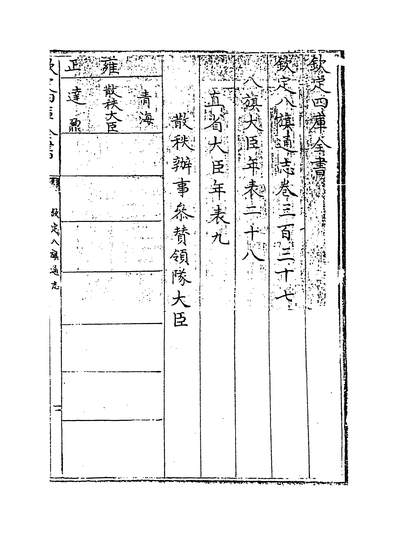 欽定四庫全書
欽定八旗通志卷三百三十七
八旗大臣年表二十八
直省大臣年表九
散秩辦事叅贊領隊大臣
青海
散秩大臣
雍正
達鼐
欽定四庫全書
欽定八旗通志
一